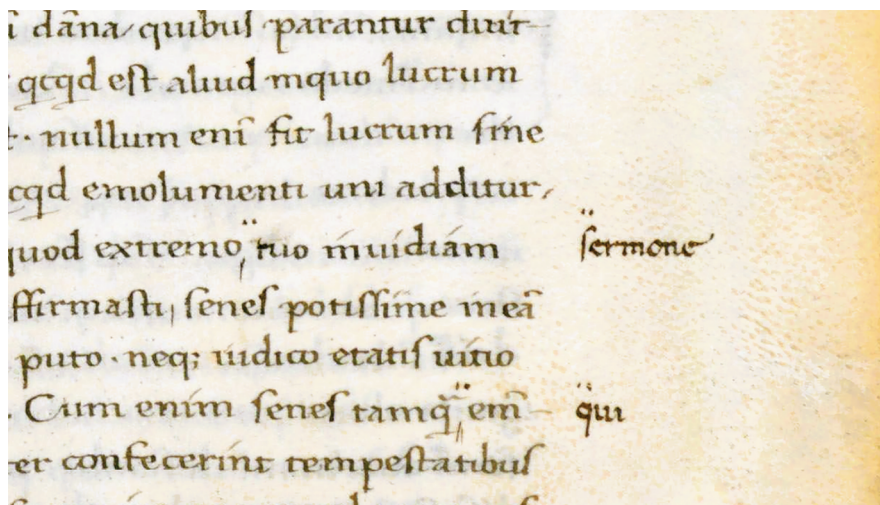 dãna, quibus parantur diuit-
qcqd est aliud inquo lucrum
nullum enĩ fit lucrum sine
cqd emolumenti uni additur,
quod extremo, tuo inuidiam sermone
ffirmasti, senes potissime meã
puto. neq; iudico etatis uitio
Cum enim senes tamq̃, em̃- qui
ter confecerint tempestatibus